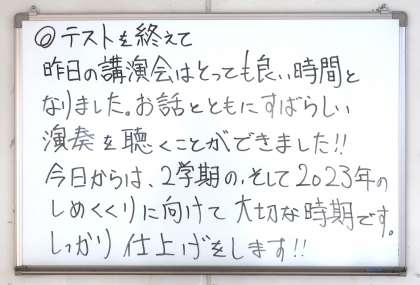 ◎テストを終えて
昨日の講演会はとっても良い時間と
なりました。お話とともにすばらしい
演奏を聴くことができました!!
今日からは、2学期の、そして2023年の
しめくくりに向けて大切な時期です。
しっかり仕上げをします!!